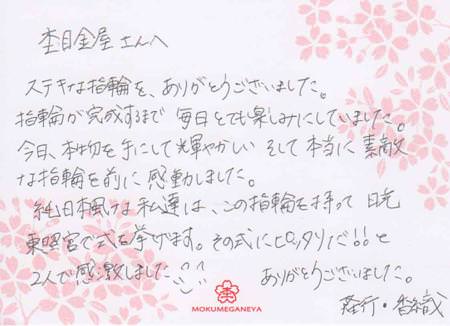 杢目金屋さんへ
ステキな指輪を、ありがとうございました。
指輪が完成するまで毎日とても楽しみにしていました。
今日、本物を手にして輝やかしい そして本当に素敵
な指輪を前に感動しました。
純日本風な私達は、この指輪を持って 日光
東照宮で式を挙げます。その式にピッタリだ!!と
2人で感激しました
ありがとうございました。
MOKUMEGANEYA
・香織